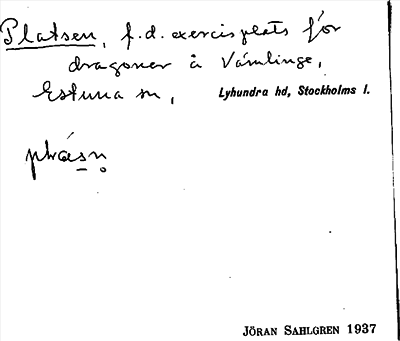 Platsen, f.d. exercisplats för
dragoner å Vämlinge,
Estuna sn, Lyhundra hd, Stockholms l.
plásn̥
JÖRAN SAHLGREN 1937